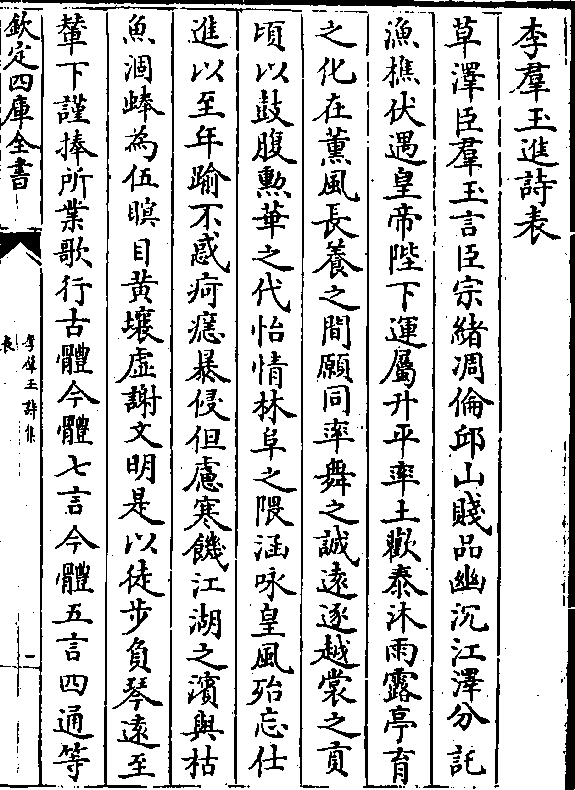 李羣玉進詩表
草澤臣羣玉言臣宗緒凋倫邱山賤品幽沉江澤分託
漁樵伏遇皇帝陛下運屬升平率土歡泰沐雨露亭育
之化在薫風長養之間願同率舞之誠遠逐越裳之貢
頃以鼓腹勲華之代怡情林阜之隈涵咏皇風殆忘仕
進以至年踰不惑疴瘵暴侵但慮寒饑江湖之濱與枯
魚涸蚌為伍瞑目黄壤虚謝文明是以徒步負琴遠至
輦下謹捧所業歌行古體今體七言今體五言四通等
欽定四庫全書
李羣玉詩集
表
一